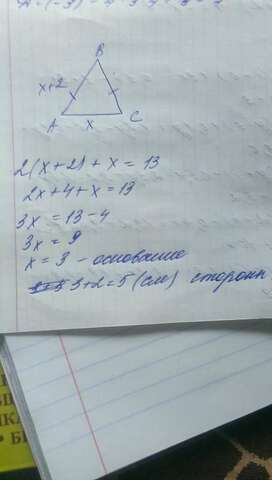 B
x+2
A x C
2(x+2)+x=13
2x+4+x=13
3x=13-4
3x=9
x=3 - основание
3+2=5 (см) сторона